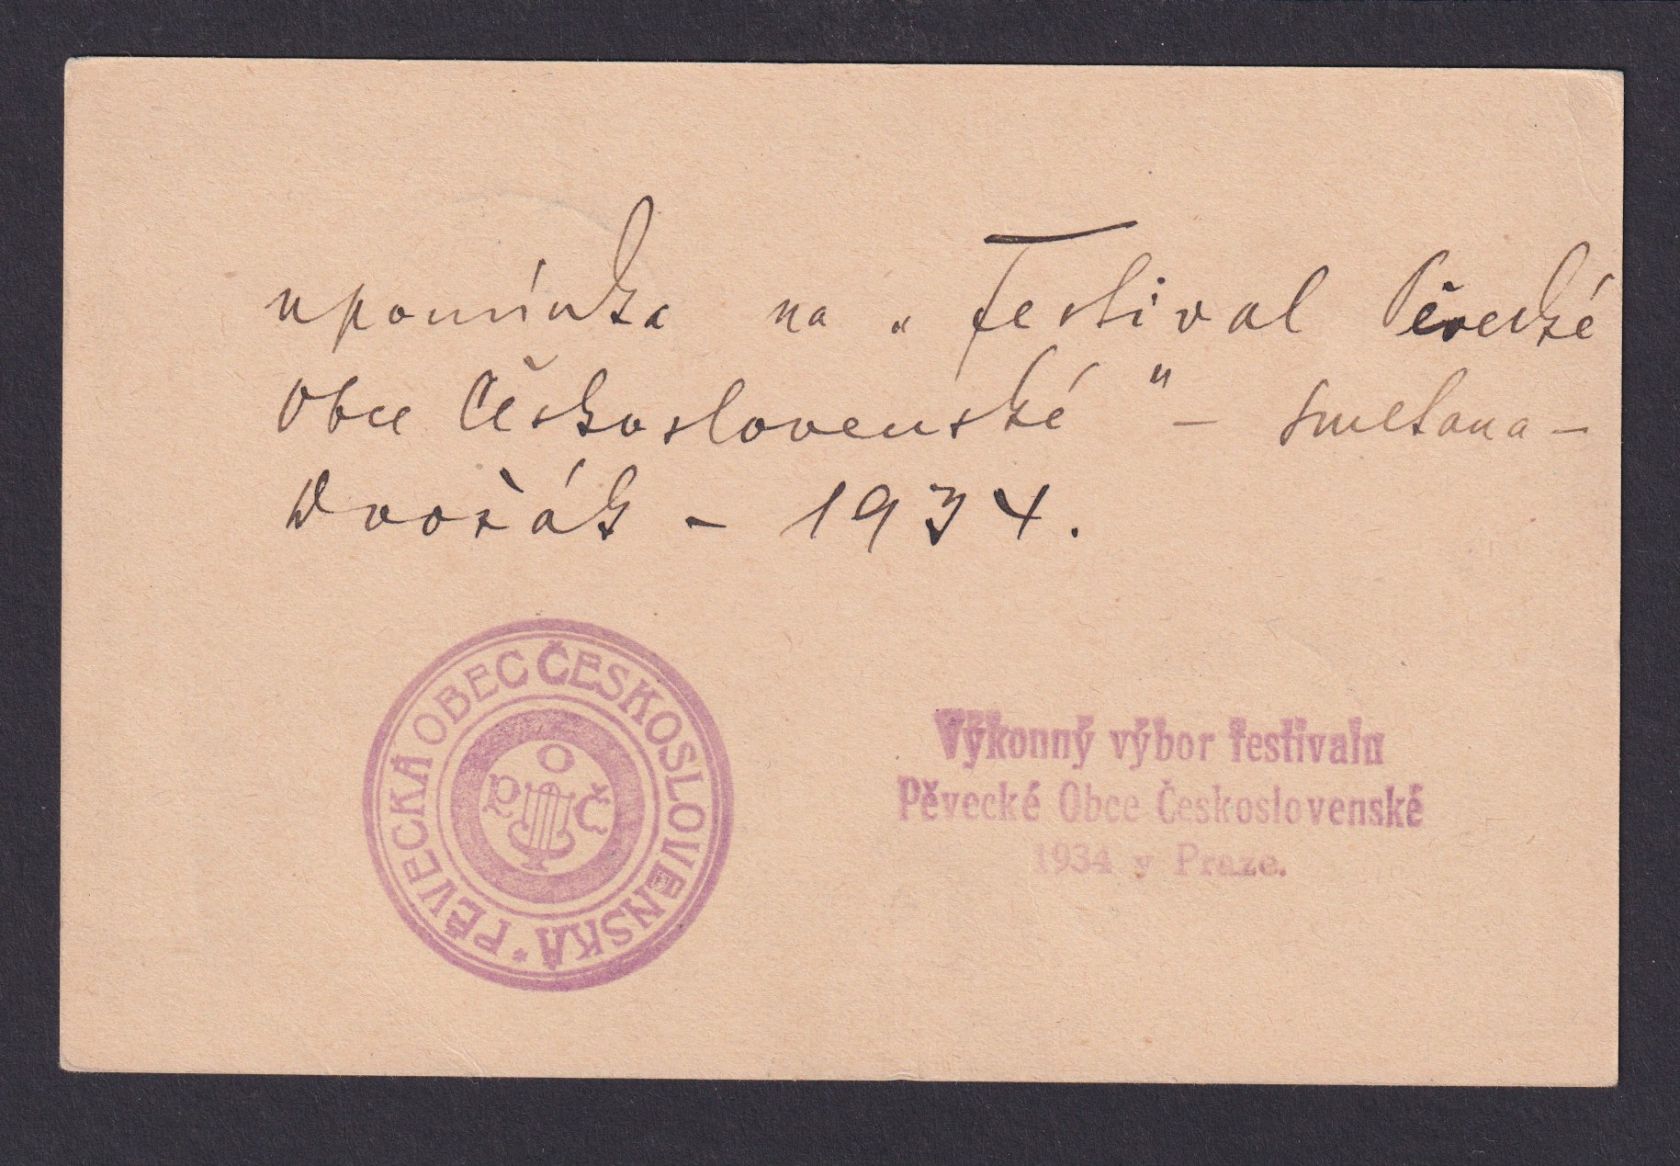 upomínka na „Festival Pěvecké
Obce Československé" – Smetana –
Dvořák – 1934.
PĚVECKÁ OBEC ČESKOSLOVENSKÁ *
P O Č
Výkonný výbor festivalu
Pěvecké Obce Československé
1934 v Praze.